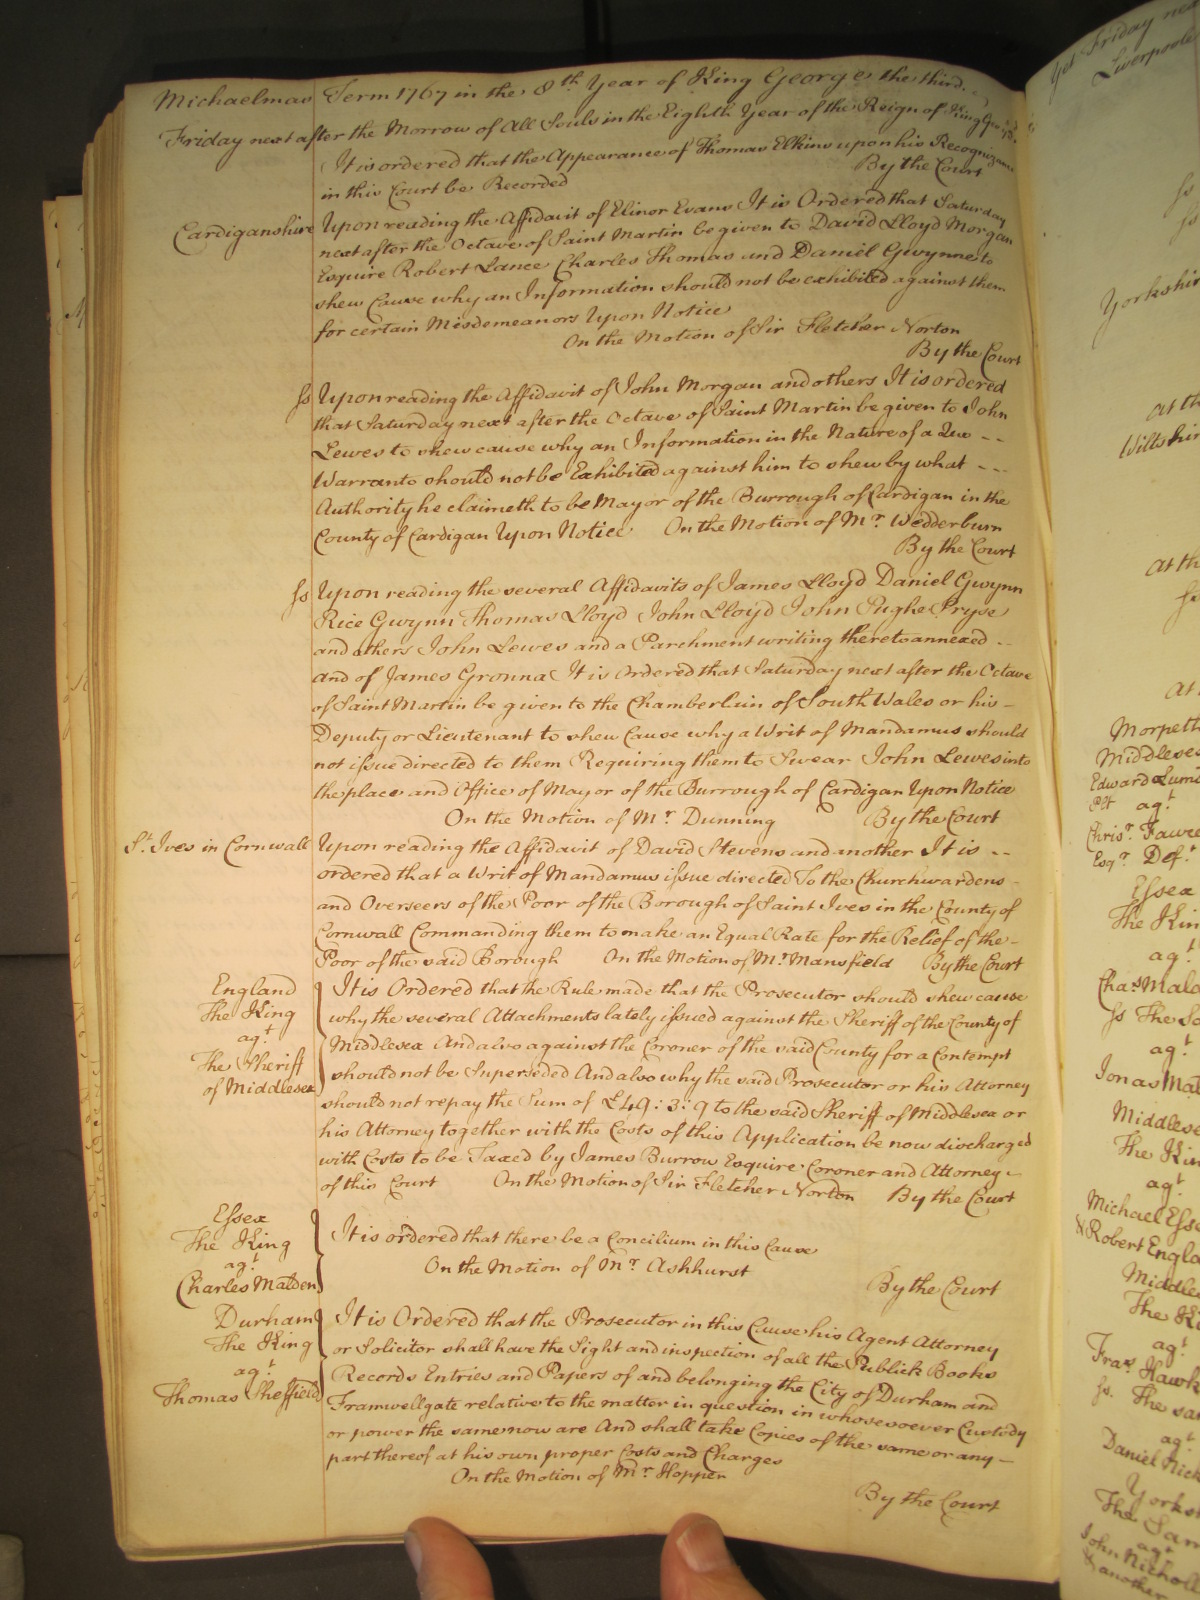 Michaelmas Term 1767 in the 8th Year of King George the third.
Friday next after the Morrow of All Souls in the Eighth Year of the Reign of King Geo: 3d.
It is ordered that the Appearance of Thomas Elkins upon his Recognizance
in this Court be Recorded By the Court
Cardiganshire Upon reading the Affidavit of Elinor Evans It is Ordered that Saturday
next after the Octave of Saint Martin be given to David Lloyd Morgan
Esquire Robert Lance Charles Thomas and Daniel Gwynne to
shew Cause why an Information should not be exhibited against them
for certain Misdemeanors Upon Notice
On the Motion of Sir Fletcher Norton
By the Court
ss Upon reading the Affidavit of John Morgan and others It is ordered
that Saturday next after the Octave of Saint Martin be given to John
Lewes to shew cause why an Information in the Nature of a Quo - -
Warranto should not be Exhibited against him to shew by what - - -
Authority he claimeth to be Mayor of the Burrough of Cardigan in the
County of Cardigan Upon Notice On the Motion of Mr. Wedderburn
By the Court
ss Upon reading the several Affidavits of James Lloyd Daniel Gwynn
Rice Gwynn Thomas Lloyd John Lloyd John Pughe Pryse
and others John Lewes and a Parchment writing thereto annexed - -
and of James Gronna It is Ordered that Saturday next after the Octave
of Saint Martin be given to the Chamberlain of South Wales or his -
Deputy or Lieutenant to shew Cause why a Writ of Mandamus should
not issue directed to them Requiring them to Swear John Lewes into
the place and Office of Mayor of the Burrough of Cardigan Upon Notice
On the Motion of Mr. Dunning By the Court
St. Ives in Cornwall Upon reading the Affidavit of David Stevens and another It is - -
ordered that a Writ of Mandamus issue directed To the Churchwardens -
and Overseers of the Poor of the Borough of Saint Ives in the County of
Cornwall Commanding them to make an Equal Rate for the Relief of the -
Poor of the said Borough On the Motion of Mr. Mansfield By the Court
England It is Ordered that the Rule made that the Prosecutor should shew cause
The King why the several Attachments lately issued against the Sheriff of the County of
agt. Middlesex And also against the Coroner of the said County for a Contempt
The Sheriff should not be Superseded And also why the said Prosecutor or his Attorney
of Middlesex should not repay the Sum of £49:3:9 to the said Sheriff of Middlesex or
his Attorney together with the Costs of this Application be now discharged
with Costs to be Taxed by James Burrow Esquire Coroner and Attorney -
of this Court On the Motion of Sir Fletcher Norton By the Court
Essex
The King It is ordered that there be a Concilium in this Cause
agt. On the Motion of Mr. Ashhurst
Charles Malden By the Court
Durham It is Ordered that the Prosecutor in this Cause his Agent Attorney
The King or Solicitor shall have the Sight and inspection of all the Publick Books
agt. Records Entries and Papers of and belonging the City of Durham and
Thomas Sheffield Framwellgate relative to the matter in question in whose soever Custody
or power the same now are And shall take Copies of the same or any -
part thereof at his own proper Costs and Charges
On the Motion of Mr Hopper
By the Court
Yet Friday nex
Liverpoole
ss
ss
Yorkshir
At th
Wiltshir
At th
ss
At
Morpeth
Middlesex
Edward Lum
Plt agt.
Chrisr. Fawce
Esqr. Deft.
Essex
The Kin
agt.
Chas Mald
ss The Sa
agt.
Jonas Mal
Middlese
The Kin
agt.
Michael Esse
& Robert Engla
Middle
The Ki
agt.
Fras. Hawk
ss. The sa
agt.
Daniel Nick
Yorks
The Sam
agt.
John Nicholl
& another